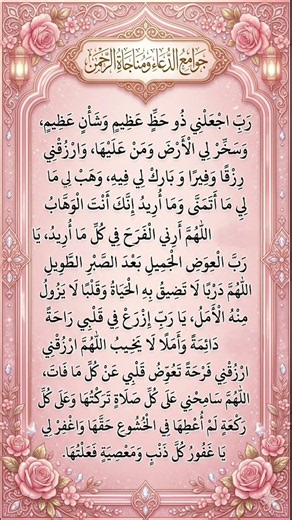 جَوَامِعُ الدُّعَاءِ وَمُنَاجَاةِ الرَّحْمٰنِ
رَبِّ اجْعَلْنِي ذُو حَظٍّ عَظِيمٍ وَشَأْنٍ عَظِيمٍ،
وَسَخِّرْ لِي الْأَرْضَ وَمَنْ عَلَيْهَا، وَارْزُقْنِي
رِزْقًا وَفِيرًا وَ بَارِكْ لِي فِيهِ، وَهَبْ لِي مَا
لِي مَا أَتَمَنَّى وَمَا أُرِيدُ إِنَّكَ أَنْتَ الْوَهَّابُ
اللَّهُمَّ أَرِنِي الْفَرَحَ فِي كُلِّ مَا أُرِيدُ، يَا
رَبَّ الْعِوَضِ الْجَمِيلِ بَعْدَ الصَّبْرِ الطَّوِيلِ
اللَّهُمَّ دَرْبًا لَا تَضِيقُ بِهِ الْحَيَاةُ وَقَلْبًا لَا يَزُولُ
مِنْهُ الْأَمَلُ، يَا رَبِّ إِزْرَعْ فِي قَلْبِي رَاحَةً
دَائِمَةً وَأَمَلًا لَا يَخِيبُ اللَّهُمَّ ارْزُقْنِي
ارْزُقْنِي فَرْحَةً تُعَوِّضُ قَلْبِي عَنْ كُلِّ مَا فَاتَ،
اللَّهُمَّ سَامِحْنِي عَلَى كُلِّ صَلَاةٍ تَرَكْتُهَا وَعَلَى كُلِّ
رَكْعَةٍ لَمْ أُعْطِهَا فِي الْخُشُوعِ حَقَّهَا وَاغْفِرْ لِي
يَا غَفُورُ كُلَّ ذَنْبٍ وَمَعْصِيَةٍ فَعَلْتُهَا.